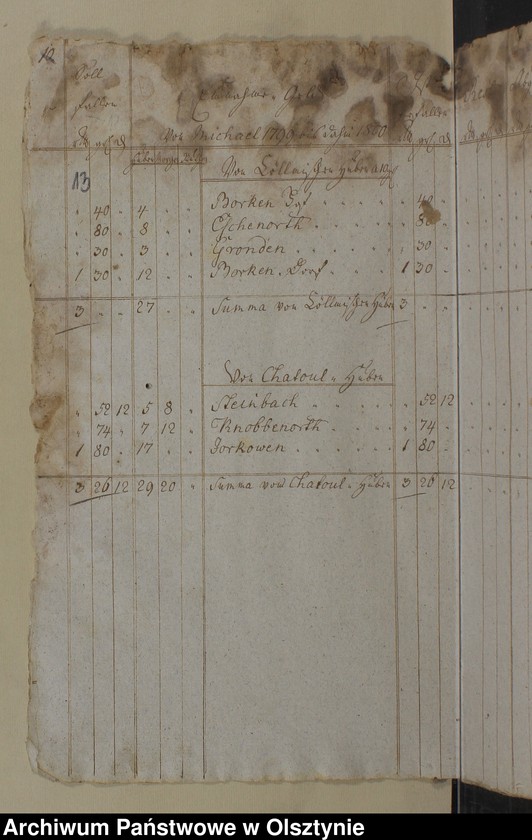 12
Soll
fallen
Von Michael 17 1800
13
Von Cöllmischen Huben
40 4 Borken 40
80 8 Czchenorth 80
30 3 Gronden 30
1 30 12 Borken Dorf 1 30
3 27 Summa von Cöllmischen Huben 3
Von Chatoul Huben
52 12 5 8 Steinbach 52 12
74 7 12 Knobbenorth 74
1 80 17 Jorkowen 1 80
3 26 12 29 20 Summa von Chatoul Huben 3 26 12
Archiwum Państwowe w Olsztynie